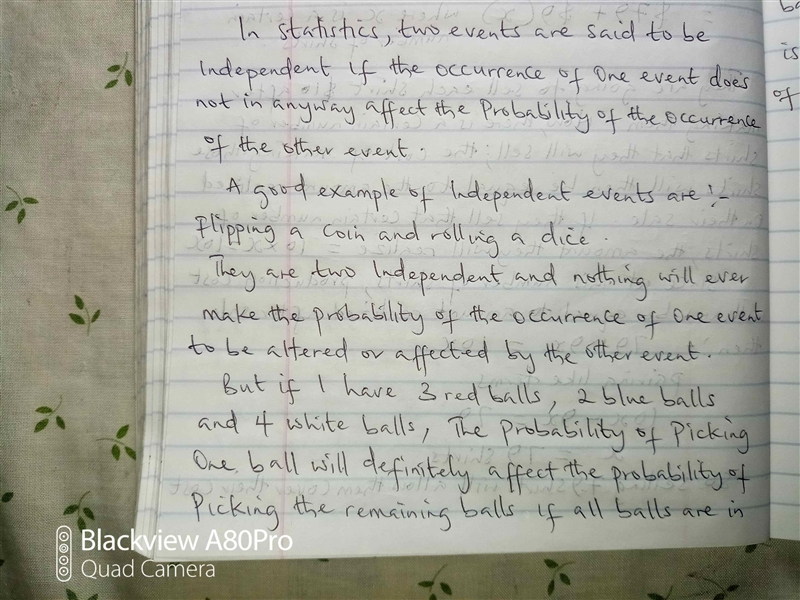 In statistics, two events are said to be
Independent if the occurrence of one event does
not in anyway affect the Probability of the occurrence
of the other event.
A good example of Independent events are :-
Flipping a coin and rolling a dice.
They are two Independent and nothing will ever
make the probability of the occurrence of one event
to be altered or affected by the other event.
But if I have 3 red balls, 2 blue balls
and 4 white balls, The probability of Picking
One ball will definitely affect the probability of
Picking the remaining balls if all balls are in
ba
is
of
Blackview A80Pro
Quad Camera